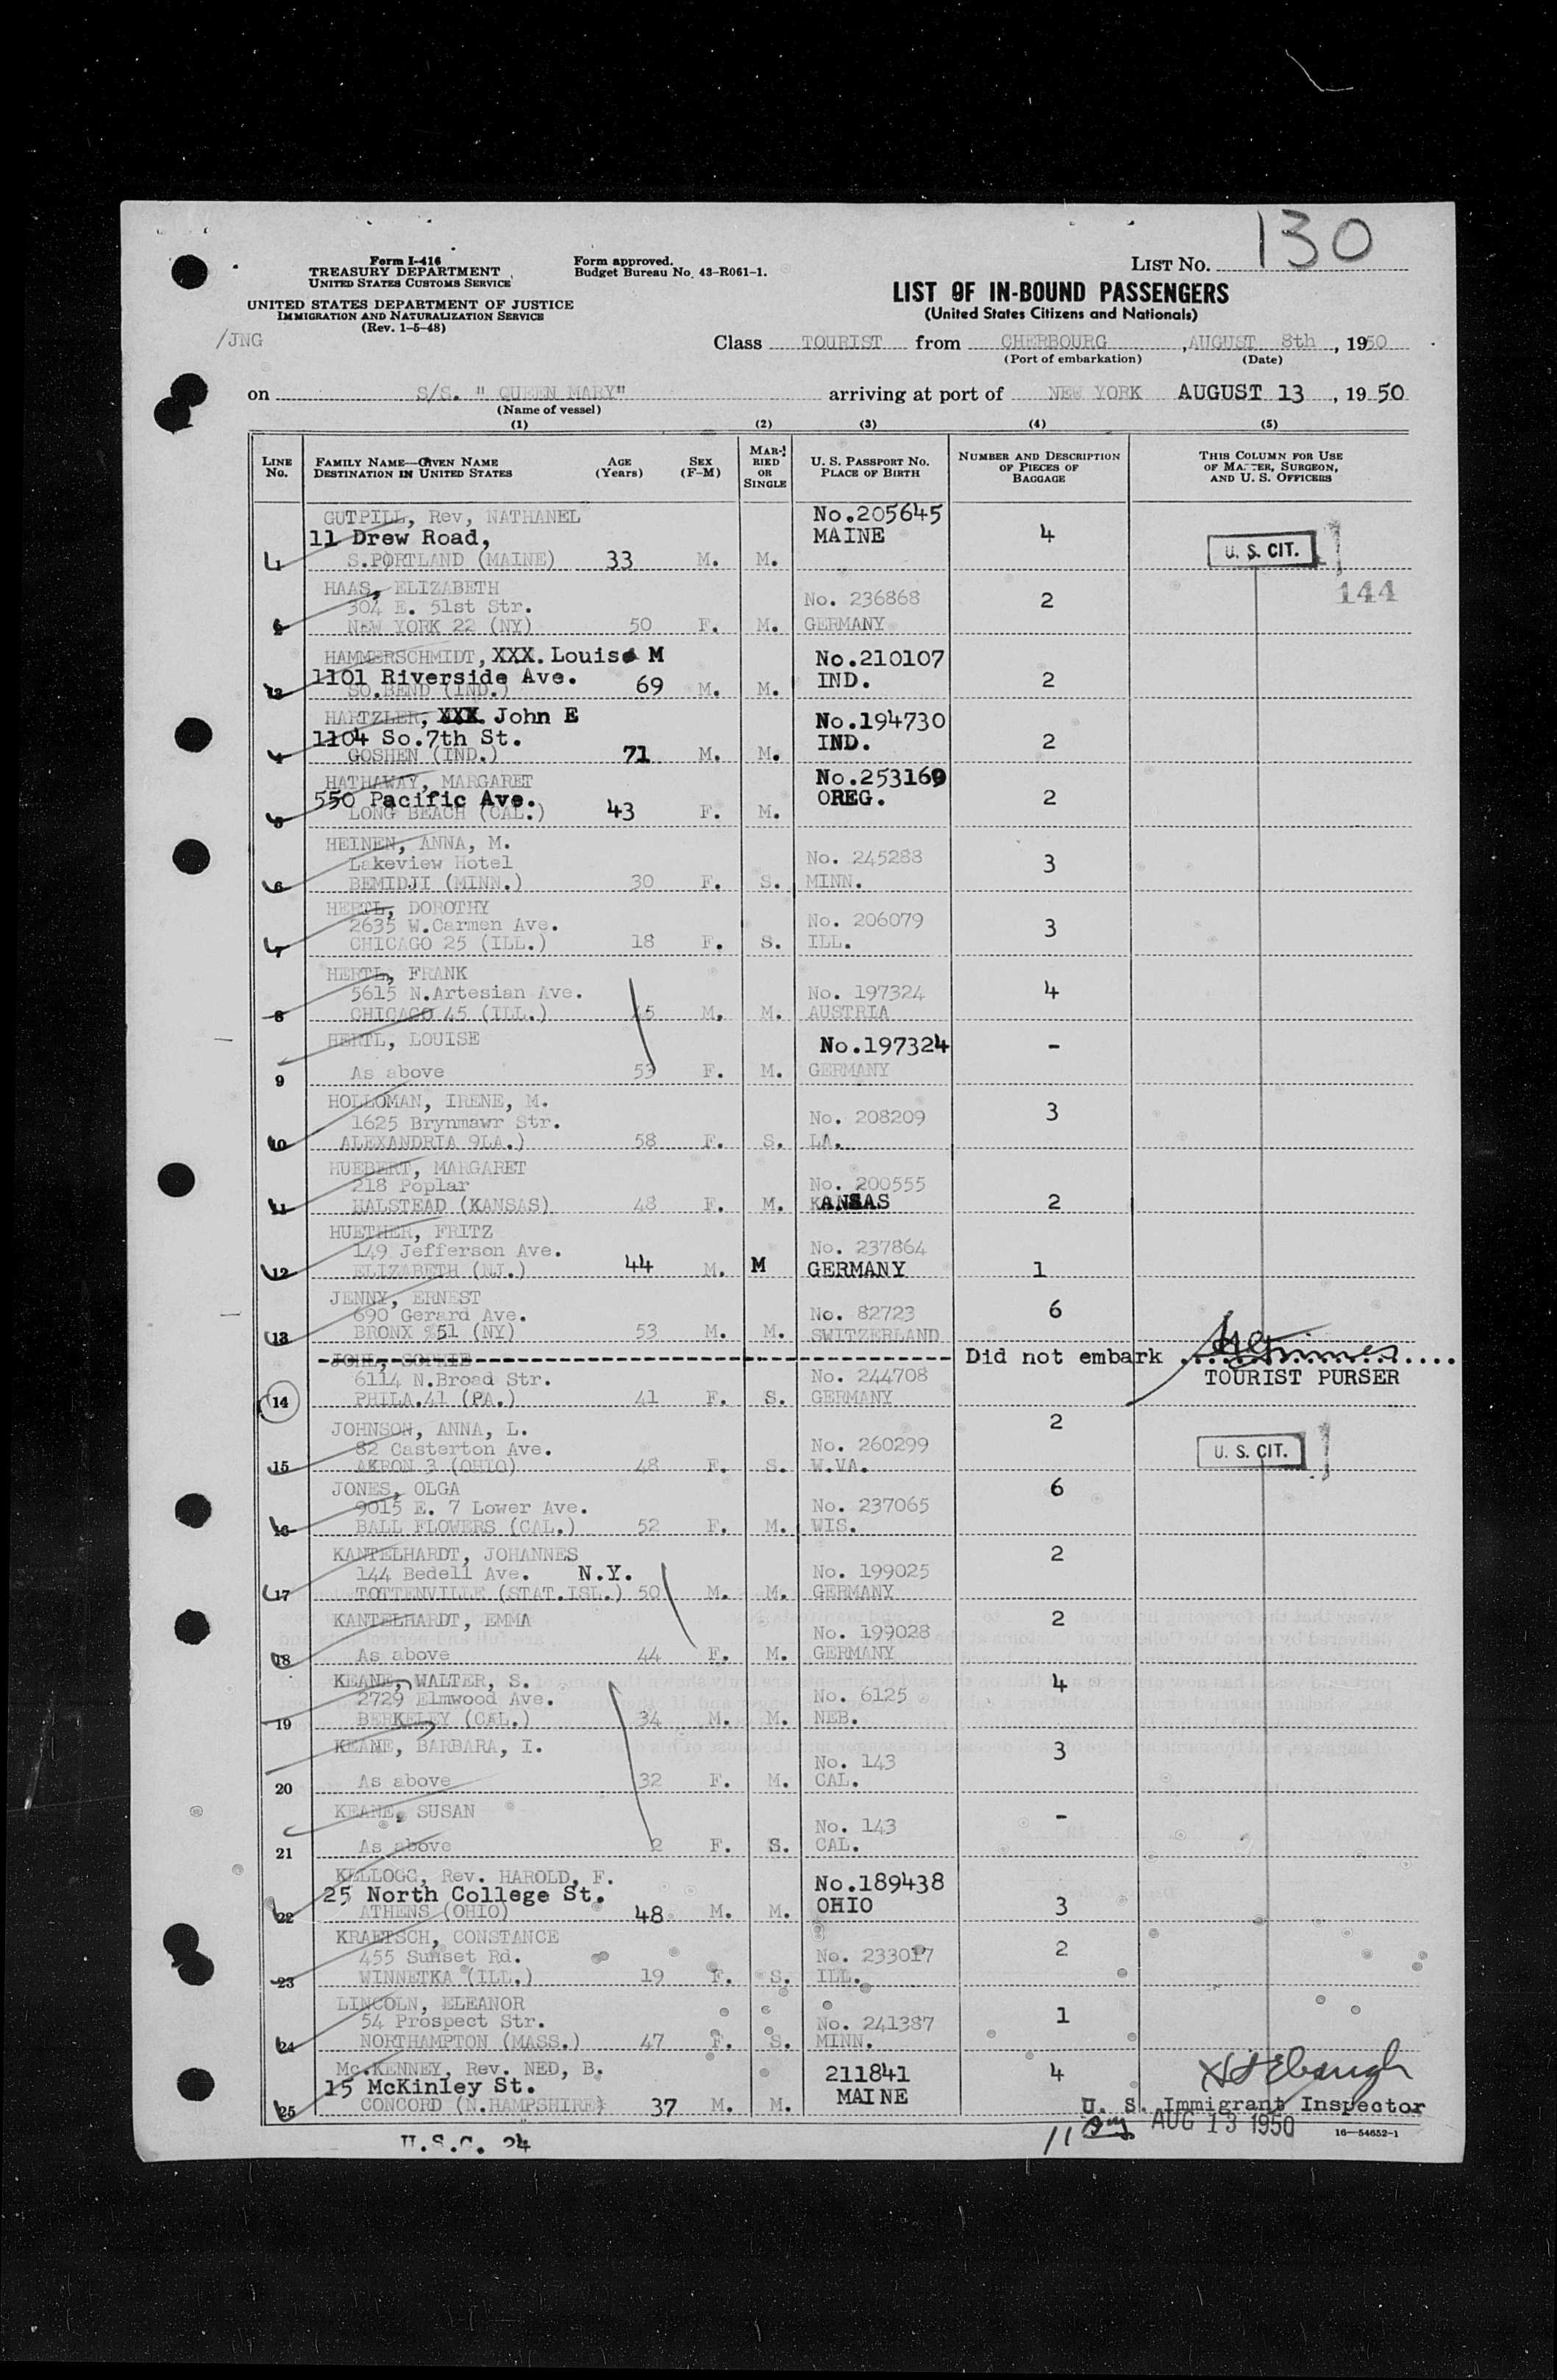 130
Form I-416
TREASURY DEPARTMENT
UNITED STATES CUSTOMS SERVICE
Form approved.
Budget Bureau No. 43-R061-1.
LIST NO.
UNITED STATES DEPARTMENT OF JUSTICE
IMMIGRATION AND NATURALIZATION SERVICE
(Rev. 1-5-48)
LIST OF IN-BOUND PASSENGERS
(United States Citizens and Nationals)
/JNG
Class TOURIST from CHERBOURG, AUGUST 8th, 1950
(Port of embarkation) (Date)
on S/S. " QUEEN MARY" arriving at port of NEW YORK AUGUST 13, 1950
(Name of vessel)
(1) (2) (3) (4) (5)
LINE NO. FAMILY NAME—GIVEN NAME DESTINATION IN UNITED STATES AGE (Years) SEX (F-M) MARRIED OR SINGLE U. S. PASSPORT NO. PLACE OF BIRTH NUMBER AND DESCRIPTION OF PIECES OF BAGGAGE THIS COLUMN FOR USE OF MASTER, SURGEON, AND U. S. OFFICERS
GUTPILL, Rev, NATHANEL No.205645
11 Drew Road, MAINE 4
1 S.PORTLAND (MAINE) 33 M. M. U. S. CIT.
144
HAAS, ELIZABETH
304 E. 51st Str. No. 236868 2
2 NEW YORK 22 (NY) 50 F. M. GERMANY
HAMMERSCHMIDT, XXX. Louis M No.210107
1101 Riverside Ave. IND. 2
3 SO.BEND (IND.) 69 M. M.
HARTZLER, XXX John E No.194730
1104 So.7th St. IND. 2
4 GOSHEN (IND.) 71 M. M.
HATHAWAY, MARGARET No.253169
550 Pacific Ave. OREG. 2
5 LONG BEACH (CAL.) 43 F. M.
HEINEN, ANNA, M.
Lakeview Hotel No. 245288 3
6 BEMIDJI (MINN.) 30 F. S. MINN.
HERTL, DOROTHY
2635 W.Carmen Ave. No. 206079 3
7 CHICAGO 25 (ILL.) 18 F. S. ILL.
HERTL, FRANK
5615 N.Artesian Ave. No. 197324 4
8 CHICAGO 45 (ILL.) 45 M. M. AUSTRIA
HERTL, LOUISE No.197324 -
9 As above 53 F. M. GERMANY
HOLLOMAN, IRENE, M.
1625 Brynmawr Str. No. 208209 3
10 ALEXANDRIA 9LA.) 58 F. S. LA.
HUEBERT, MARGARET
218 Poplar No. 200555
11 HALSTEAD (KANSAS) 48 F. M. KANSAS 2
HUETHER, FRITZ
149 Jefferson Ave. No. 237864
12 ELIZABETH (NJ.) 44 M. M GERMANY 1
JENNY, ERNEST
690 Gerard Ave. No. 82723 6
13 BRONX %51 (NY) 53 M. M. SWITZERLAND
JOHL, SOPHIE Did not embark
6114 N.Broad Str. No. 244708 TOURIST PURSER
14 PHILA.41 (PA.) 41 F. S. GERMANY
JOHNSON, ANNA, L. 2
82 Casterton Ave. No. 260299 U. S. CIT.
15 AKRON 3 (OHIO) 48 F. S. W.VA.
JONES, OLGA 6
9015 E. 7 Lower Ave. No. 237065
16 BALL FLOWERS (CAL.) 52 F. M. WIS.
KANTELHARDT, JOHANNES 2
144 Bedell Ave. N.Y. No. 199025
17 TOTTENVILLE (STAT.ISL.) 50 M. M. GERMANY
KANTELHARDT, EMMA No. 199028 2
18 As above 44 F. M. GERMANY
KEANE, WALTER, S. 4
2729 Elmwood Ave. No. 6125
19 BERKELEY (CAL.) 34 M. M. NEB.
KEANE, BARBARA, I. No. 143 3
20 As above 32 F. M. CAL.
KEANE, SUSAN No. 143 -
21 As above 2 F. S. CAL.
KELLOGG, Rev. HAROLD, F. No.189438
25 North College St. OHIO 3
22 ATHENS (OHIO) 48 M. M.
KRAETSCH, CONSTANCE 2
455 Sunset Rd. No. 233017
23 WINNETKA (ILL.) 19 F. S. ILL.
LINCOLN, ELEANOR
54 Prospect Str. No. 241387 1
24 NORTHAMPTON (MASS.) 47 F. S. MINN.
Mc.KENNEY, Rev. NED, B. 211841 4
15 McKinley St. MAINE
25 CONCORD (N.HAMPSHIRE) 37 M. M. U. S. Immigrant Inspector
AUG 13 1950
16—54652-1
U.S.C. 24